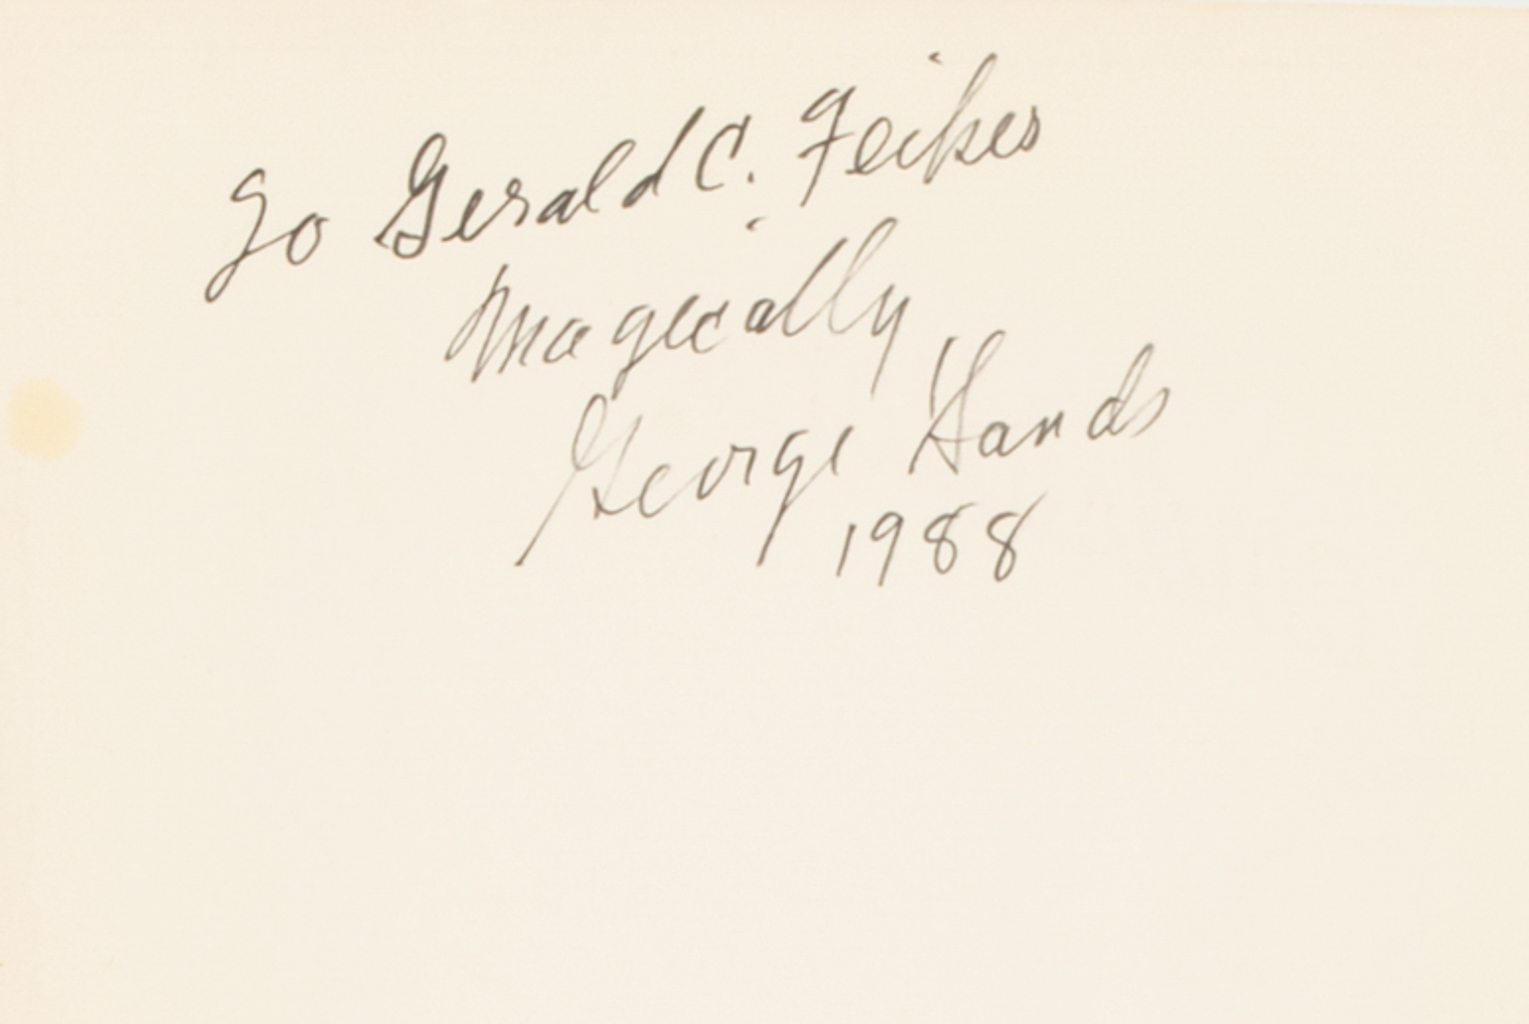 To Gerald C. Feikes
Magically
George Sands
1988